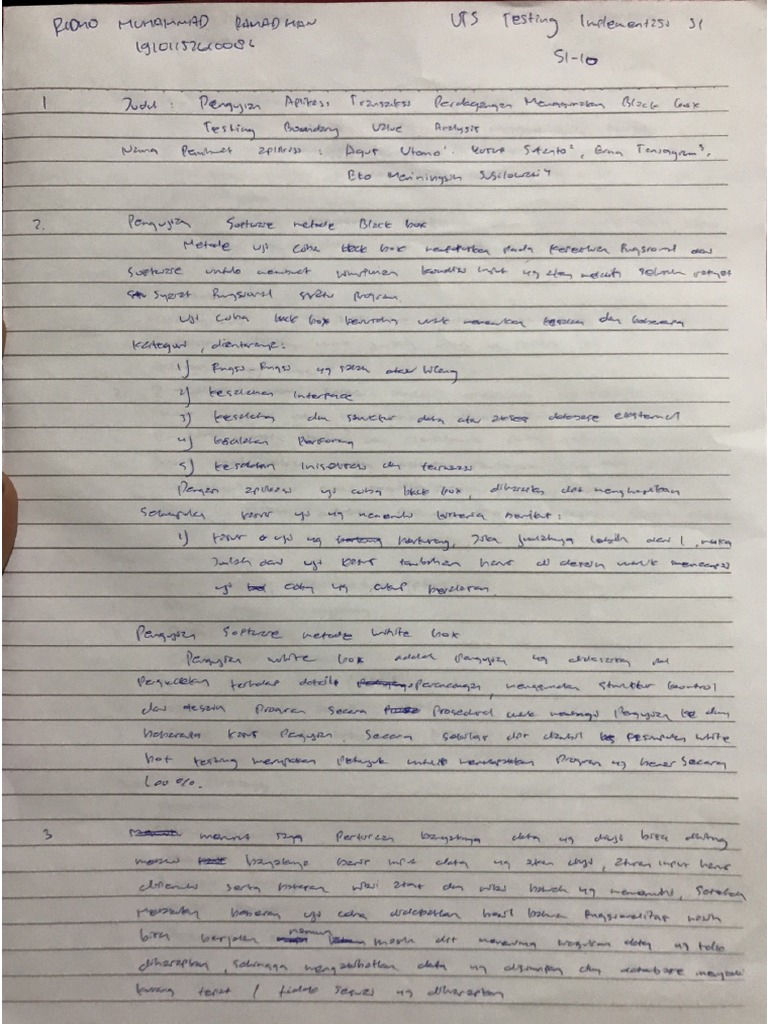 RIDHO MUHAMMAD RAMADHAN UTS Testing Implementasi SI
SI-10
1 Judul : Pengujian Aplikasi Transaksi Perdagangan Menggunakan Black box
Testing Boundary Value Analysis
Nama Pembuat aplikasi : Agus Utomo¹, Sutanto², Erna 3,
Eko Susilowati 4
2. Pengujian Software metode Black box
Metode uji coba box pada fungsional dari
software untuk membuat himpunan kondisi input yg akan seluruh
syarat fungsional suatu program.
Uji coba black box untuk menemukan dari beberapa
kategori, diantaranya:
1) Fungsi-fungsi yg salah atau hilang
2) kesalahan Interface
3) kesalahan dan struktur data atau akses database eksternal
4) kesalahan Performa
5) kesalahan inisialisasi dan terminasi
Dengan aplikasi uji coba black box, diharapkan dpt menghasilkan
sekumpulan kasus uji yg memenuhi kriteria berikut:
1) kasus uji yg berkurang, Jika jumlahnya lebih dari 1, maka
Jumlah dari uji kasus tambahan harus di desain untuk mencapai
uji coba yg cukup
Pengujian Software metode White box
Pengujian white box adalah pengujian yg didasarkan pd
Pengecekan terhadap detail Perancangan, menggunakan struktur kontrol
dari desain Program secara Prosedural untuk membagi Pengujian ke dlm
beberapa kasus Pengujian. Secara sekilas dpt diambil kesimpulan white
box testing merupakan Petunjuk untuk mendapatkan Program yg benar secara
100%.
3 menurut saya Perkiraan banyaknya data yg diuji bisa dihitung
banyaknya input data yg akan diuji, aturan input harus
dipenuhi serta batasan nilai atas dan nilai bawah yg memenuhi, Setelah
uji coba didapatkan hasil bahwa fungsionalitas masih
bisa berjalan namun masih dpt menerima masukan data yg tdk
diharapkan, sehingga mengakibatkan data yg disimpan dlm database menjadi
kurang tepat / tidak sesuai yg diharapkan